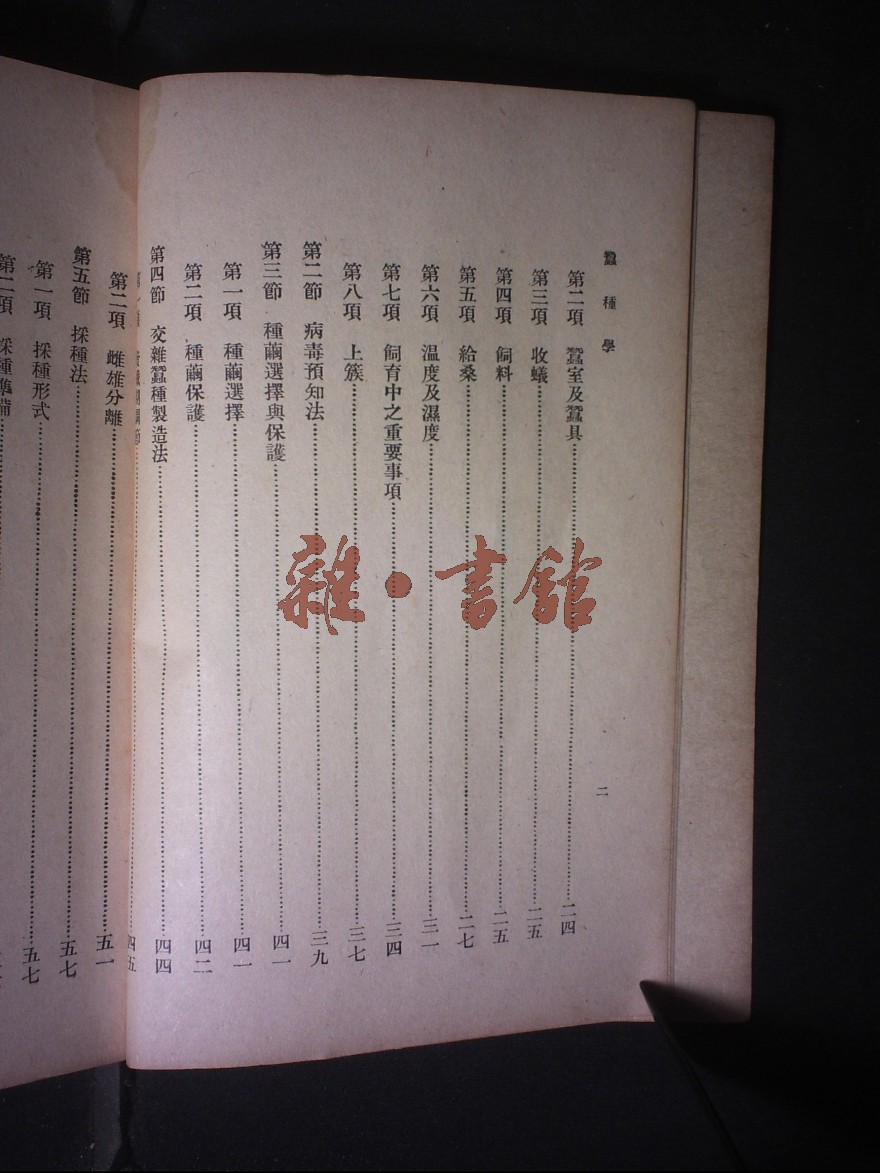 蠶種學
二
第二項 蠶室及蠶具……二四
第三項 收蟻……二五
第四項 飼料……二五
第五項 給桑……二七
第六項 溫度及濕度……三一
第七項 飼育中之重要事項……三四
第八項 上簇……三七
第二節 病毒預知法……三九
第三節 種繭選擇與保護……四一
第一項 種繭選擇……四一
第二項 種繭保護……四二
第四節 交雜蠶種製造法……四四
四五
第二項 雌雄分離……五一
第五節 採種法……五七
第一項 採種形式……五七
第二項 採種準備
雜·書館